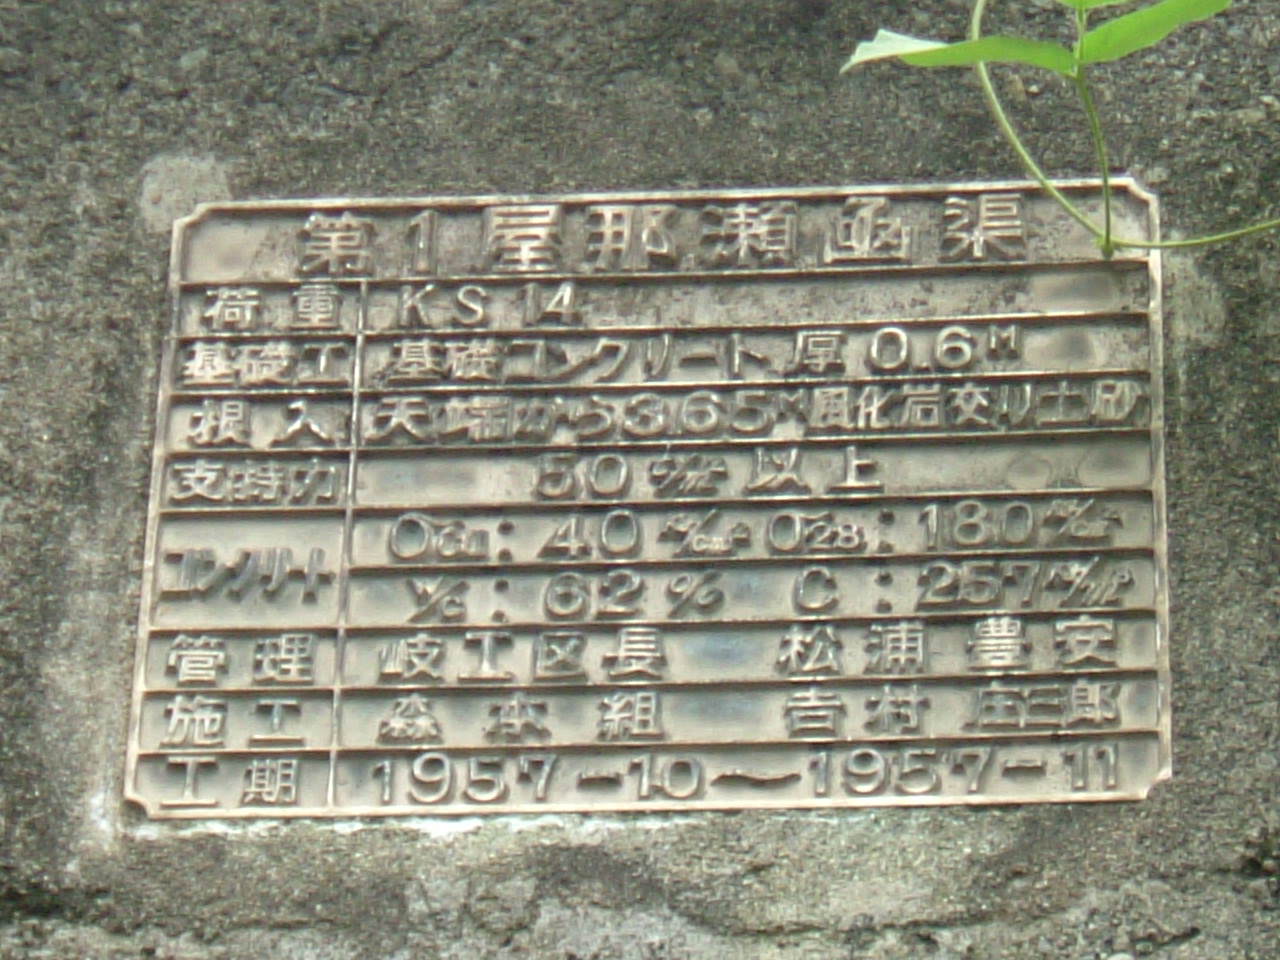 第1屋那瀬函渠
荷重 KS14
基礎工 基礎コンクリート厚0.6M
根入 天端から3.65M風化岩交り土砂
支持力 50 以上
コンクリート
σcal:40kg/cm² σ28:180kg/cm²
W/C:62% C:257kg/m³
管理 岐工区長 松浦豊安
施工 森本組 吉村庄三郎
工期 1957-10~1957-11